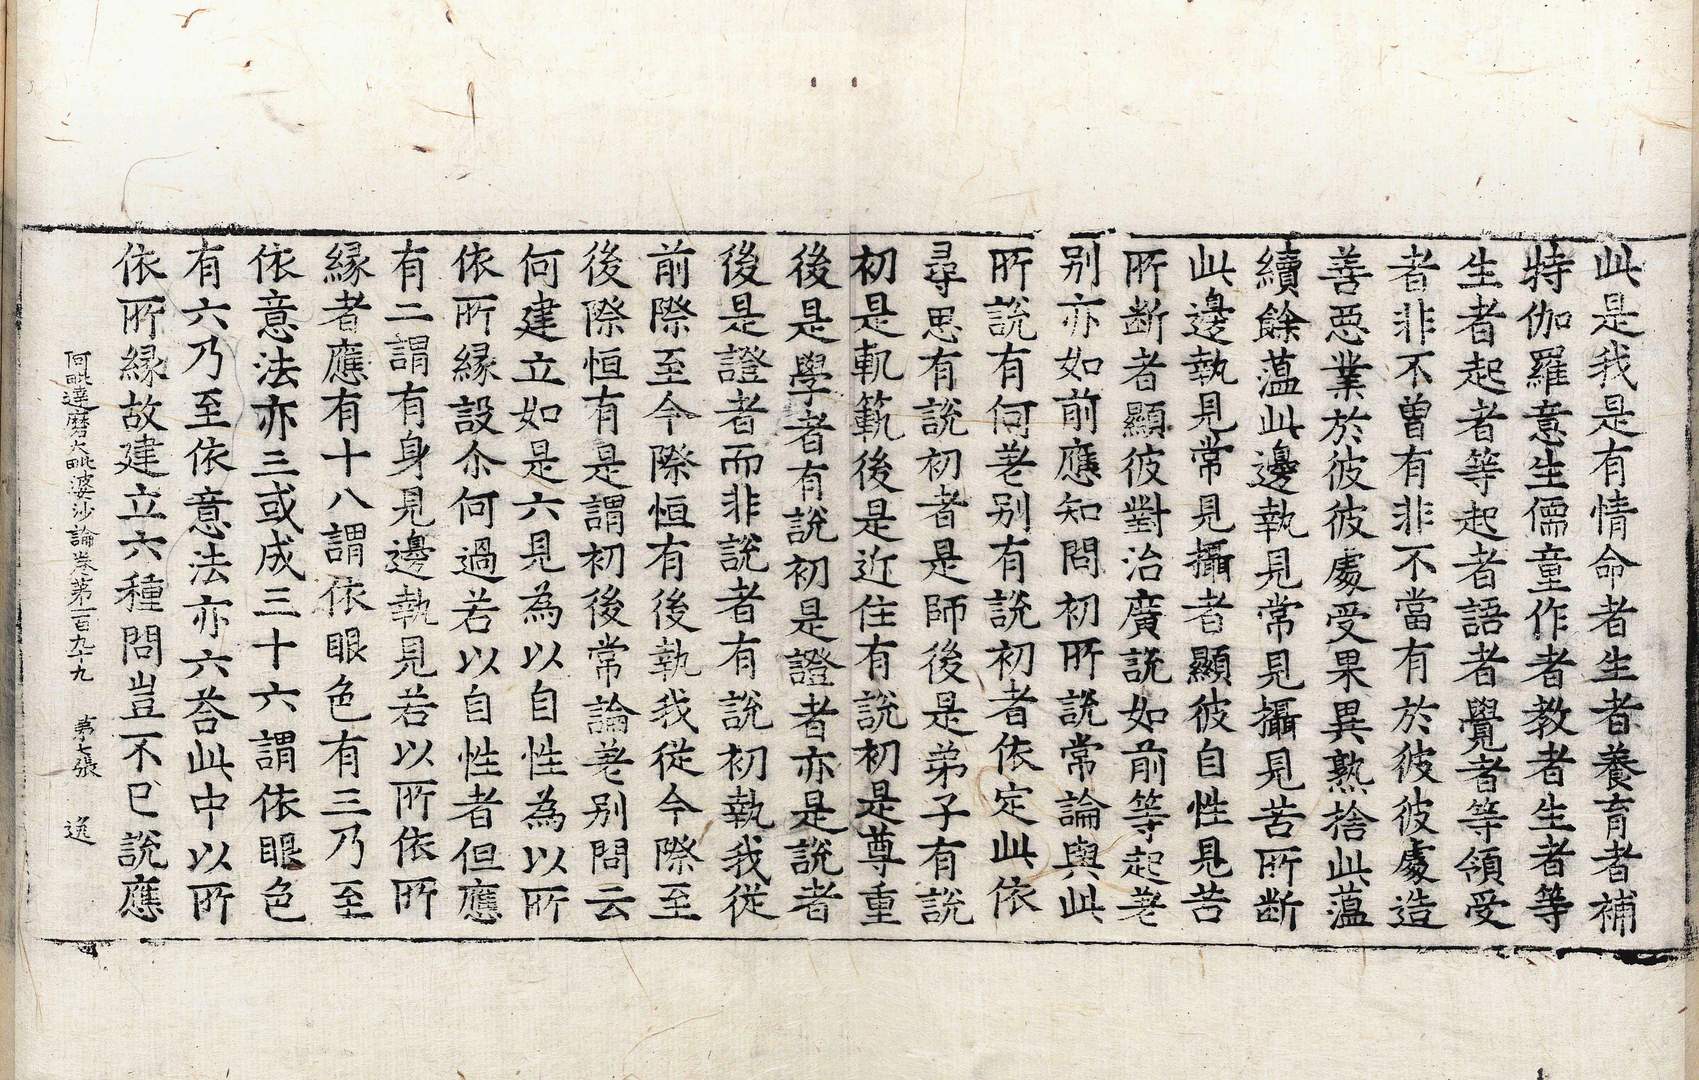 此是我是有情命者生者養育者補
特伽羅意生儒童作者教者生者等
生者起者等起者語者覺者等領受
者非不曾有非不當有於彼彼處造
善惡業於彼彼處受果異熟捨此蘊
續餘蘊此邊執見常見攝見苦所斷
此邊執見常見攝者顯彼自性見苦
所断者顯彼對治廣說如前等起差
别亦如前應知問初所說常論與此
所說有何差别有說初者依定此依
尋思有說初者是師後是弟子有說
初是軌範後是近住有說初是尊重
後是學者有說初是證者亦是說者
後是證者而非說者有說初執我從
前際至今際恒有後執我從今際至
後際恒有是謂初後常論差别問云
何建立如是六見為以自性為以所
依所縁設尒何過若以自性者但應
有二謂有身見邊執見若以所依所
縁者應有十八謂依眼色有三乃至
依意法亦三或成三十六謂依眼色
有六乃至依意法亦六荅此中以所
依所縁故建立六種問豈不已說應
阿毗達磨大毗婆沙論卷第一百九十九 第七張 逸